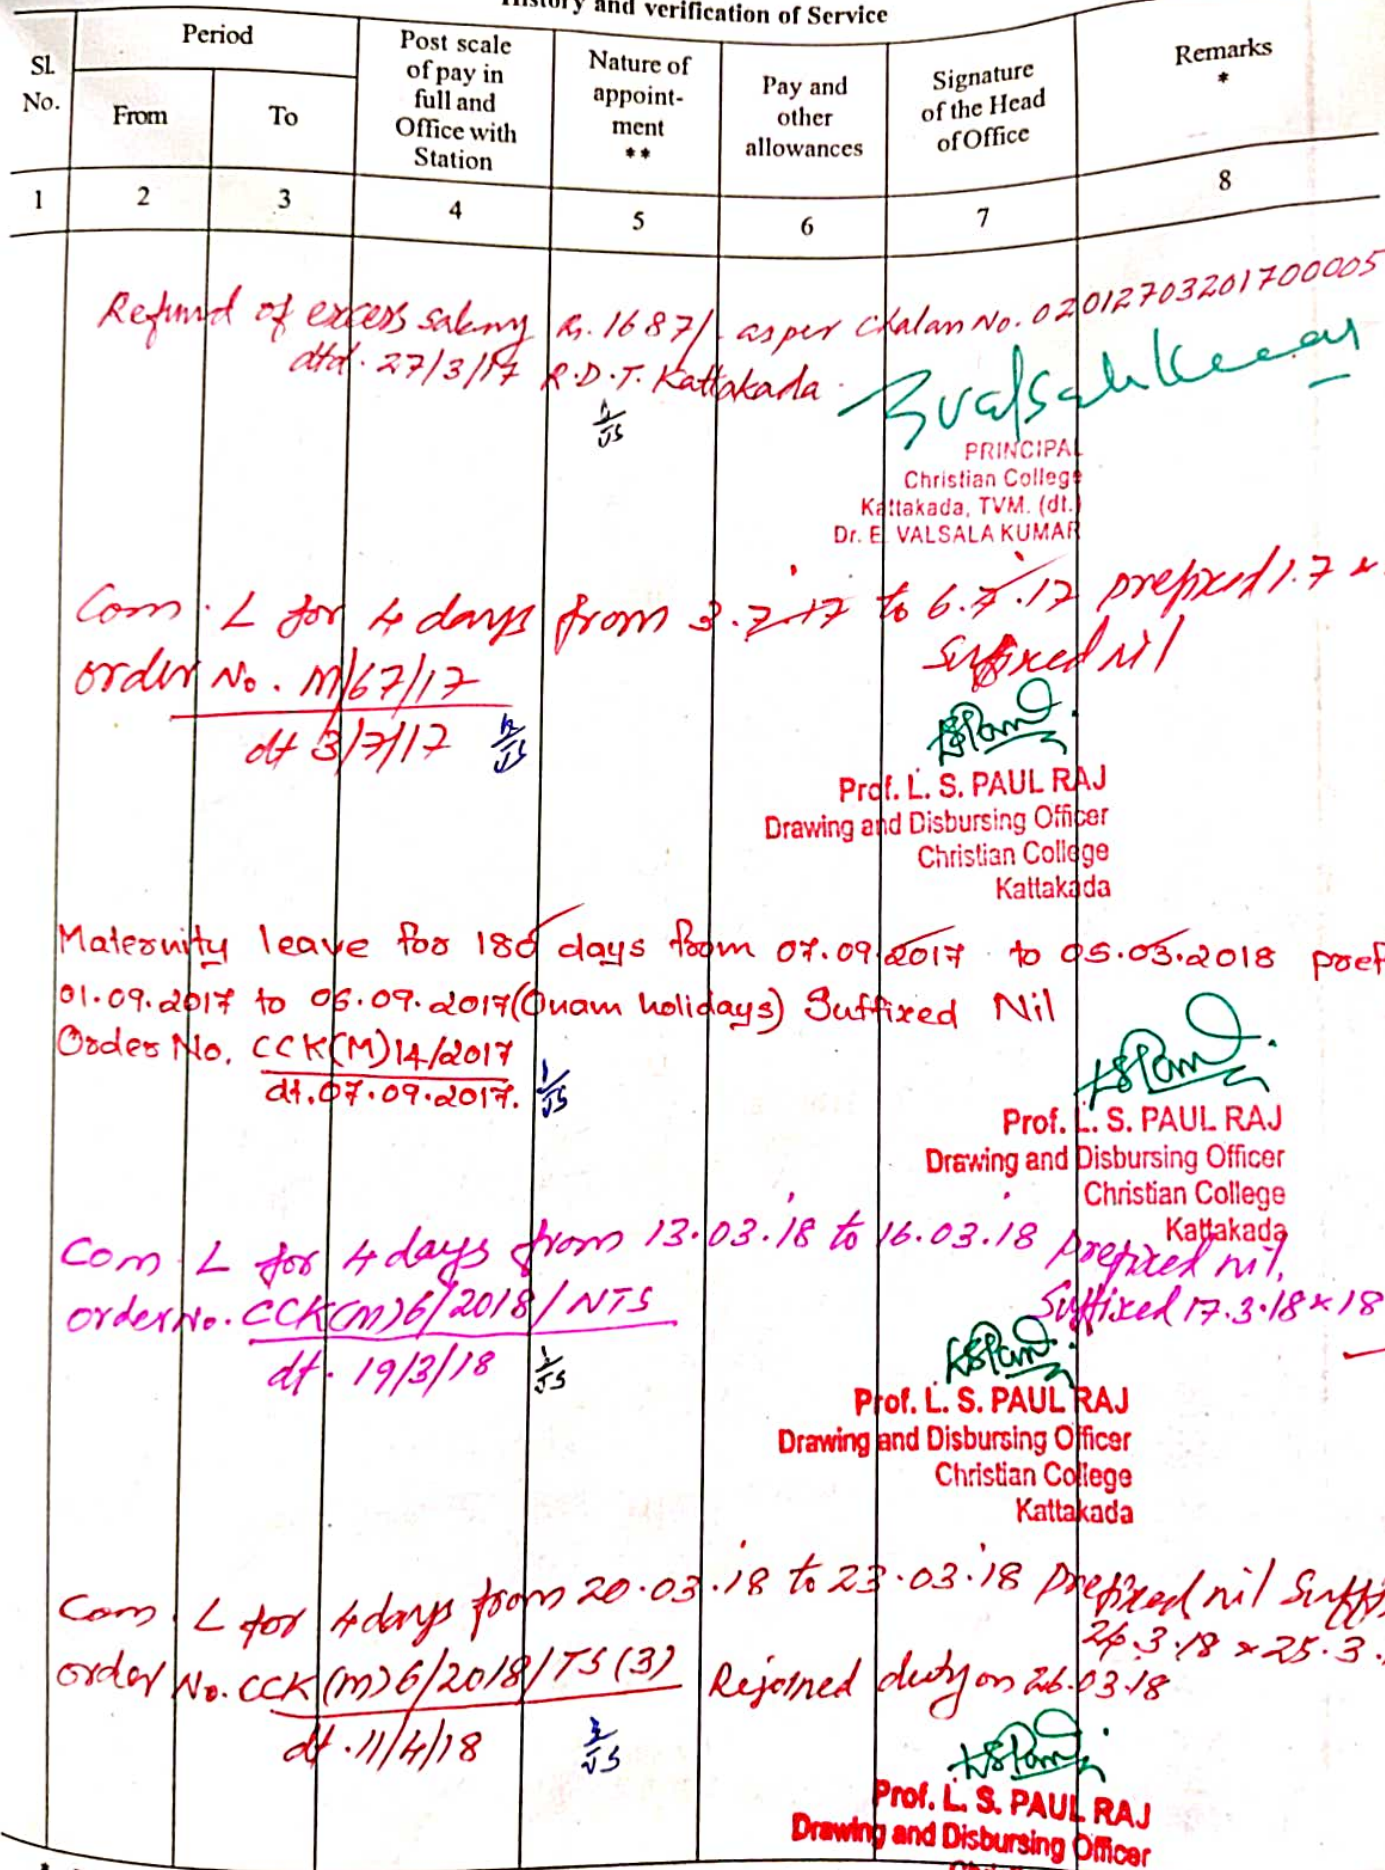 History and verification of Service
Sl. No.
Period
From
To
Post scale of pay in full and Office with Station
Nature of appoint-ment **
Pay and other allowances
Signature of the Head of Office
Remarks *
1 2 3 4 5 6 7 8
Refund of excess salary Rs. 1687/- as per Chalan No. 02012703201700005
dtd. 27/3/17 R.D.T. Kattakada.
PRINCIPAL
Christian College
Kattakada, TVM. (dt.)
Dr. E. VALSALA KUMAR
Com. L for 4 days from 3.7.17 to 6.7.17 prefixed 1.7 &
Suffixed nil
order No. M/67/17
dt 3/7/17
Prof. L. S. PAUL RAJ
Drawing and Disbursing Officer
Christian College
Kattakada
Maternity leave for 180 days from 07.09.2017 to 05.03.2018 pref
01.09.2017 to 06.09.2017 (Onam holidays) Suffixed Nil
Order No. CCK(M)14/2017
dt. 07.09.2017.
Prof. L. S. PAUL RAJ
Drawing and Disbursing Officer
Christian College
Kattakada
Com. L for 4 days from 13.03.18 to 16.03.18 prefixed nil,
Suffixed 17.3.18 & 18
order No. CCK(M)6/2018/NTS
dt. 19/3/18
Prof. L. S. PAUL RAJ
Drawing and Disbursing Officer
Christian College
Kattakada
Com. L for 4 days from 20.03.18 to 23.03.18 Prefixed nil Suffi
24.3.18 & 25.3.
order No. CCK(M)6/2018/TS(3) Rejoined duty on 26.03.18
dt. 11/4/18
Prof. L. S. PAUL RAJ
Drawing and Disbursing Officer